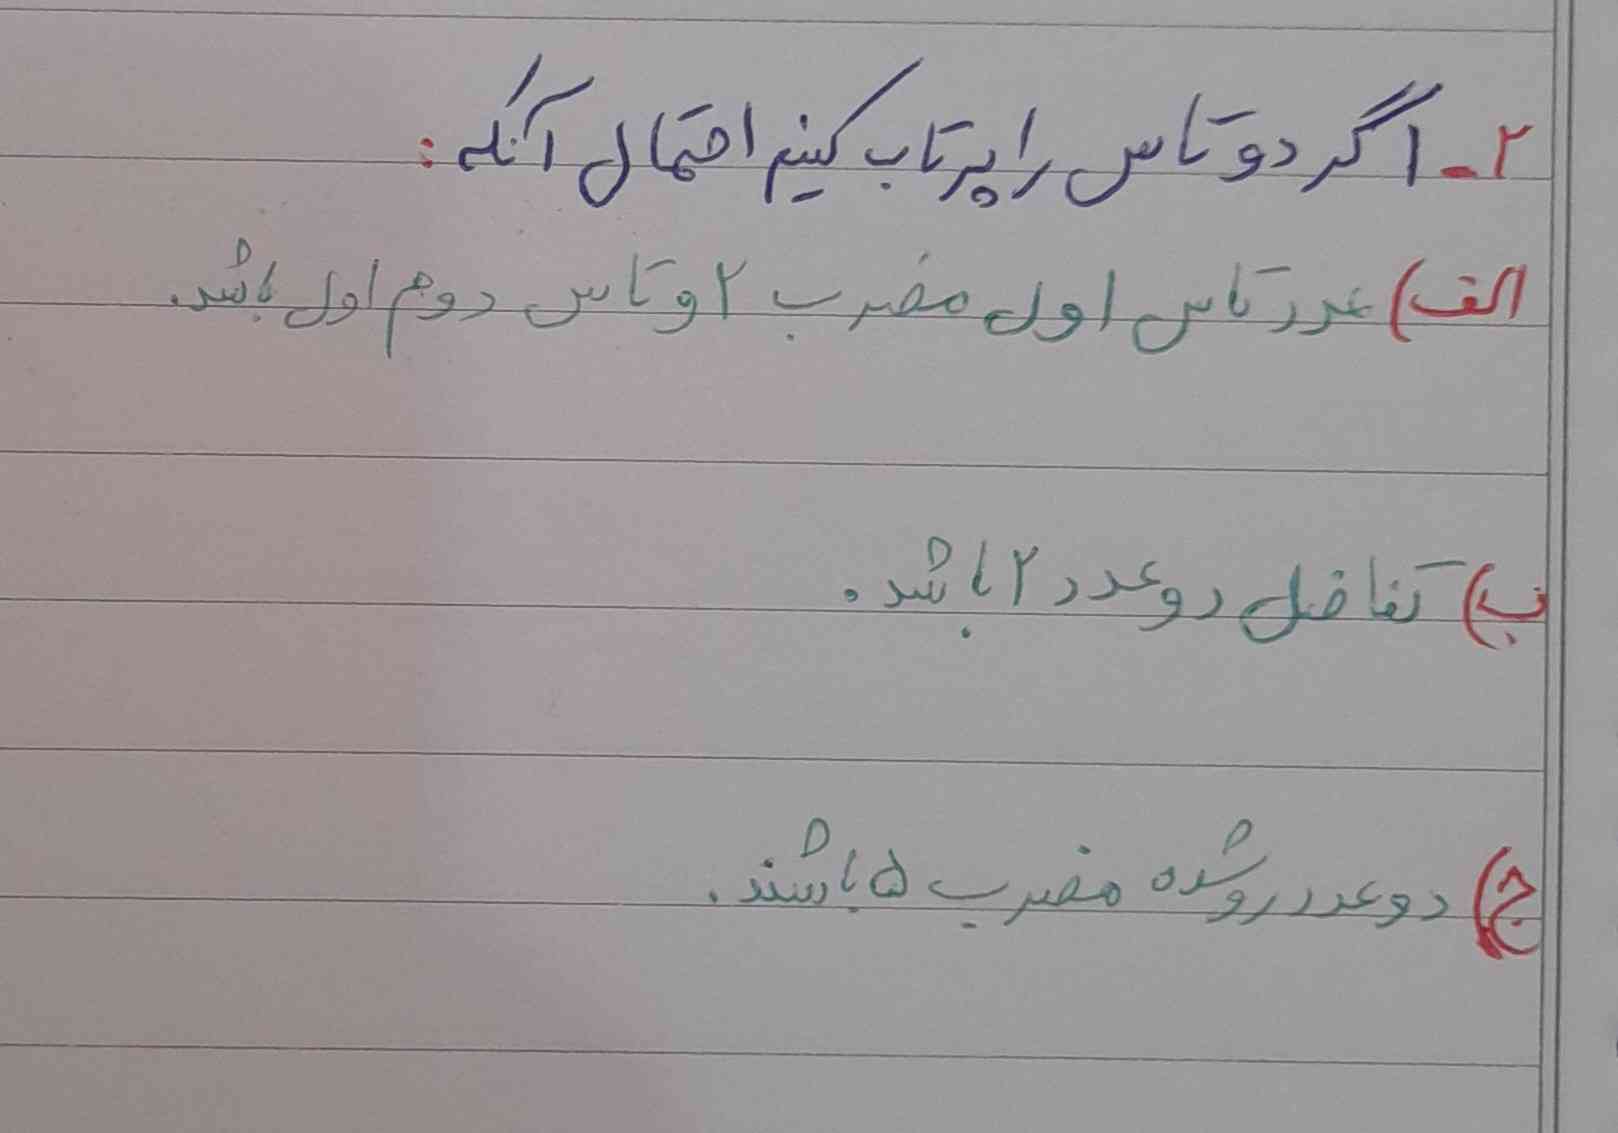 ۲- اگر دو تاس را پرتاب کنیم احتمال آنکه :
الف) عدد تاس اول مضرب ۲ و تاس دوم اول باشد.
ب) تفاضل دو عدد ۲ باشد.
ج) دو عدد رو شده مضرب ۵ باشند.